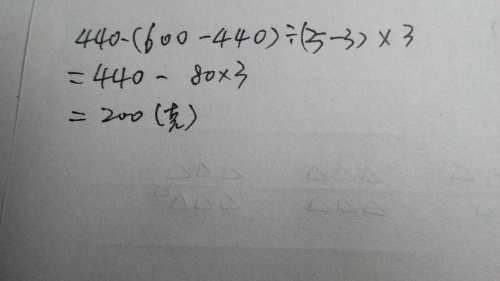 440-(600-440)÷(5-3)×3
=440-80×3
=200(克)